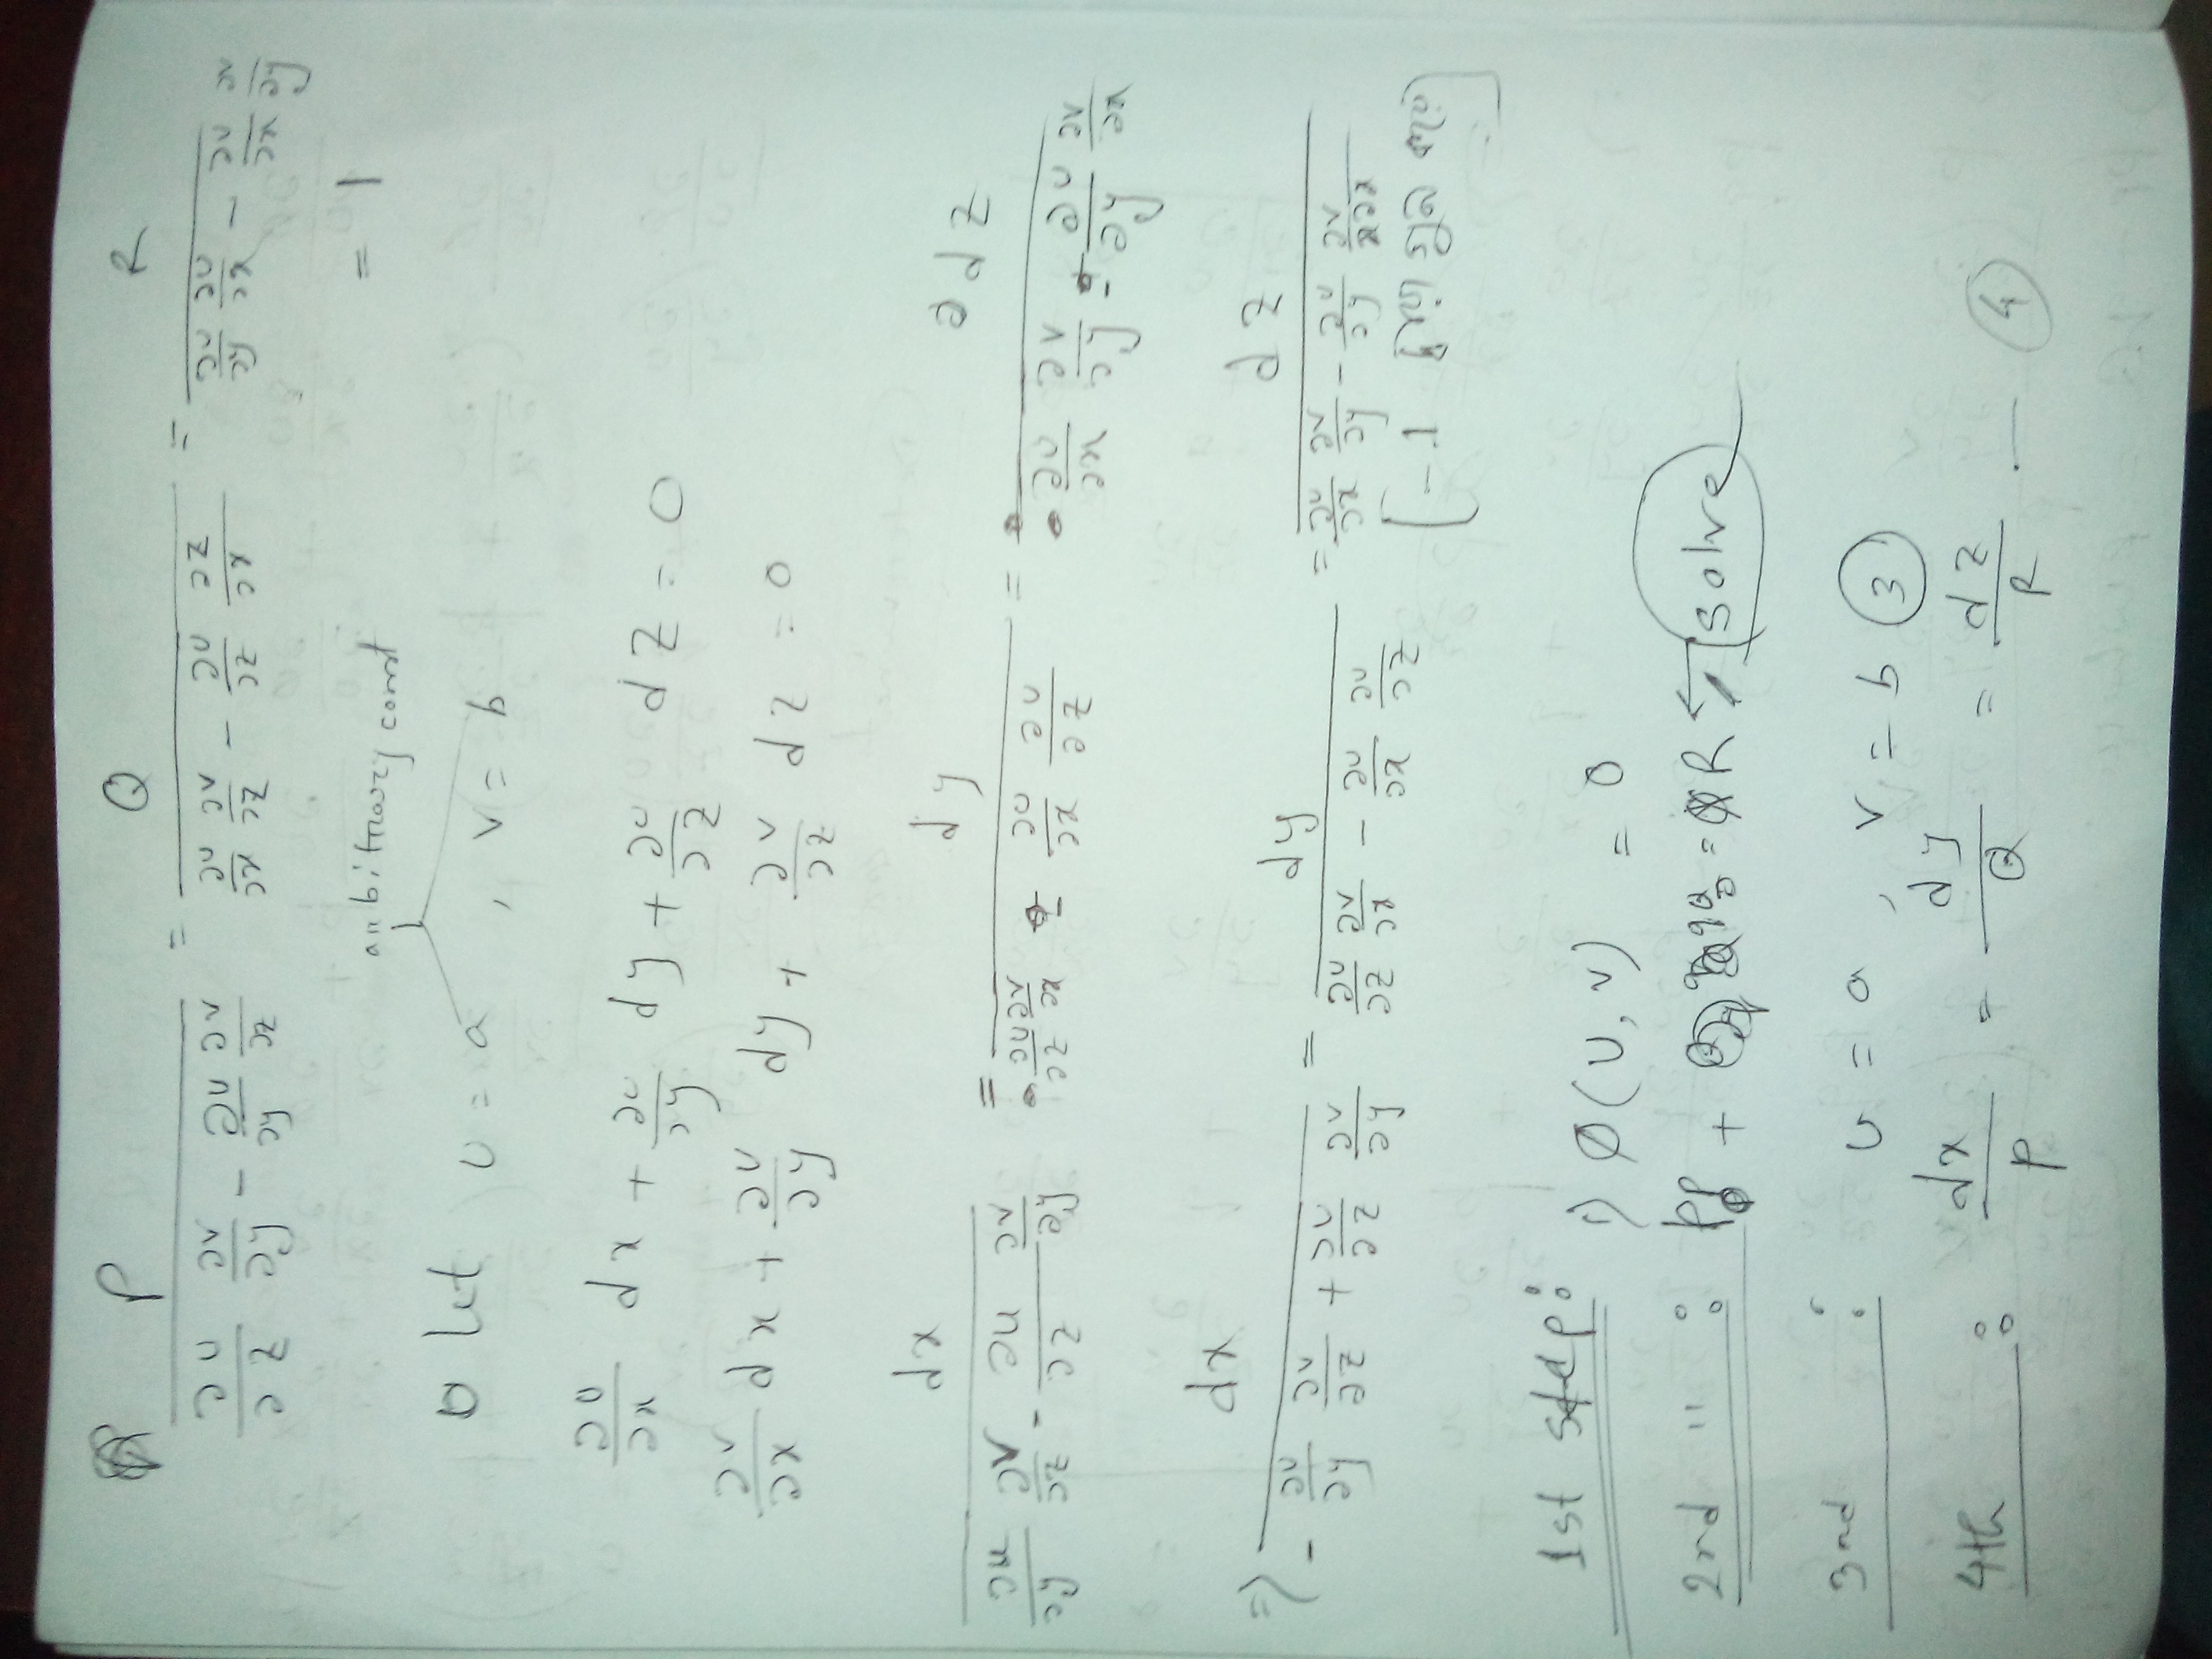 P Q R
∂u/∂z ∂v/∂y − ∂u/∂y ∂v/∂z = ∂u/∂x ∂v/∂z − ∂u/∂z ∂z/∂x = ∂u/∂y ∂v/∂x − ∂u/∂x ∂v/∂y
= 1
arbitrary const
Let u = a , v = b
∂u/∂x dx + ∂u/∂y dy + ∂u/∂z dz = 0
∂v/∂x dx + ∂v/∂y dy + ∂v/∂z dz = 0
dx / (∂u/∂y ∂v/∂z − ∂u/∂z ∂v/∂y) = dy / (∂u/∂z ∂v/∂x − ∂u/∂x ∂v/∂z) = dz / (∂u/∂x ∂v/∂y − ∂u/∂y ∂v/∂x)
⇒ dx / (− ∂u/∂y ∂v/∂z + ∂u/∂z ∂v/∂y) = dy / (∂u/∂z ∂v/∂x − ∂u/∂x ∂v/∂z) = dz / (∂u/∂x ∂v/∂y − ∂u/∂y ∂v/∂x)
[−1
1st step: 1) φ(u, v) = 0
2nd " : Pp + Qq = R solve
3rd : u = a , v = b ③
4th : dx/P = dy/Q = dz/R — ④